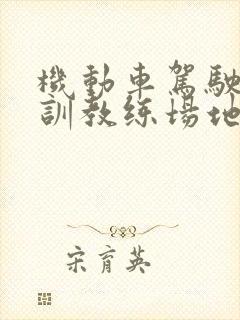 機動車駕駛
訓教练場地
宋育英